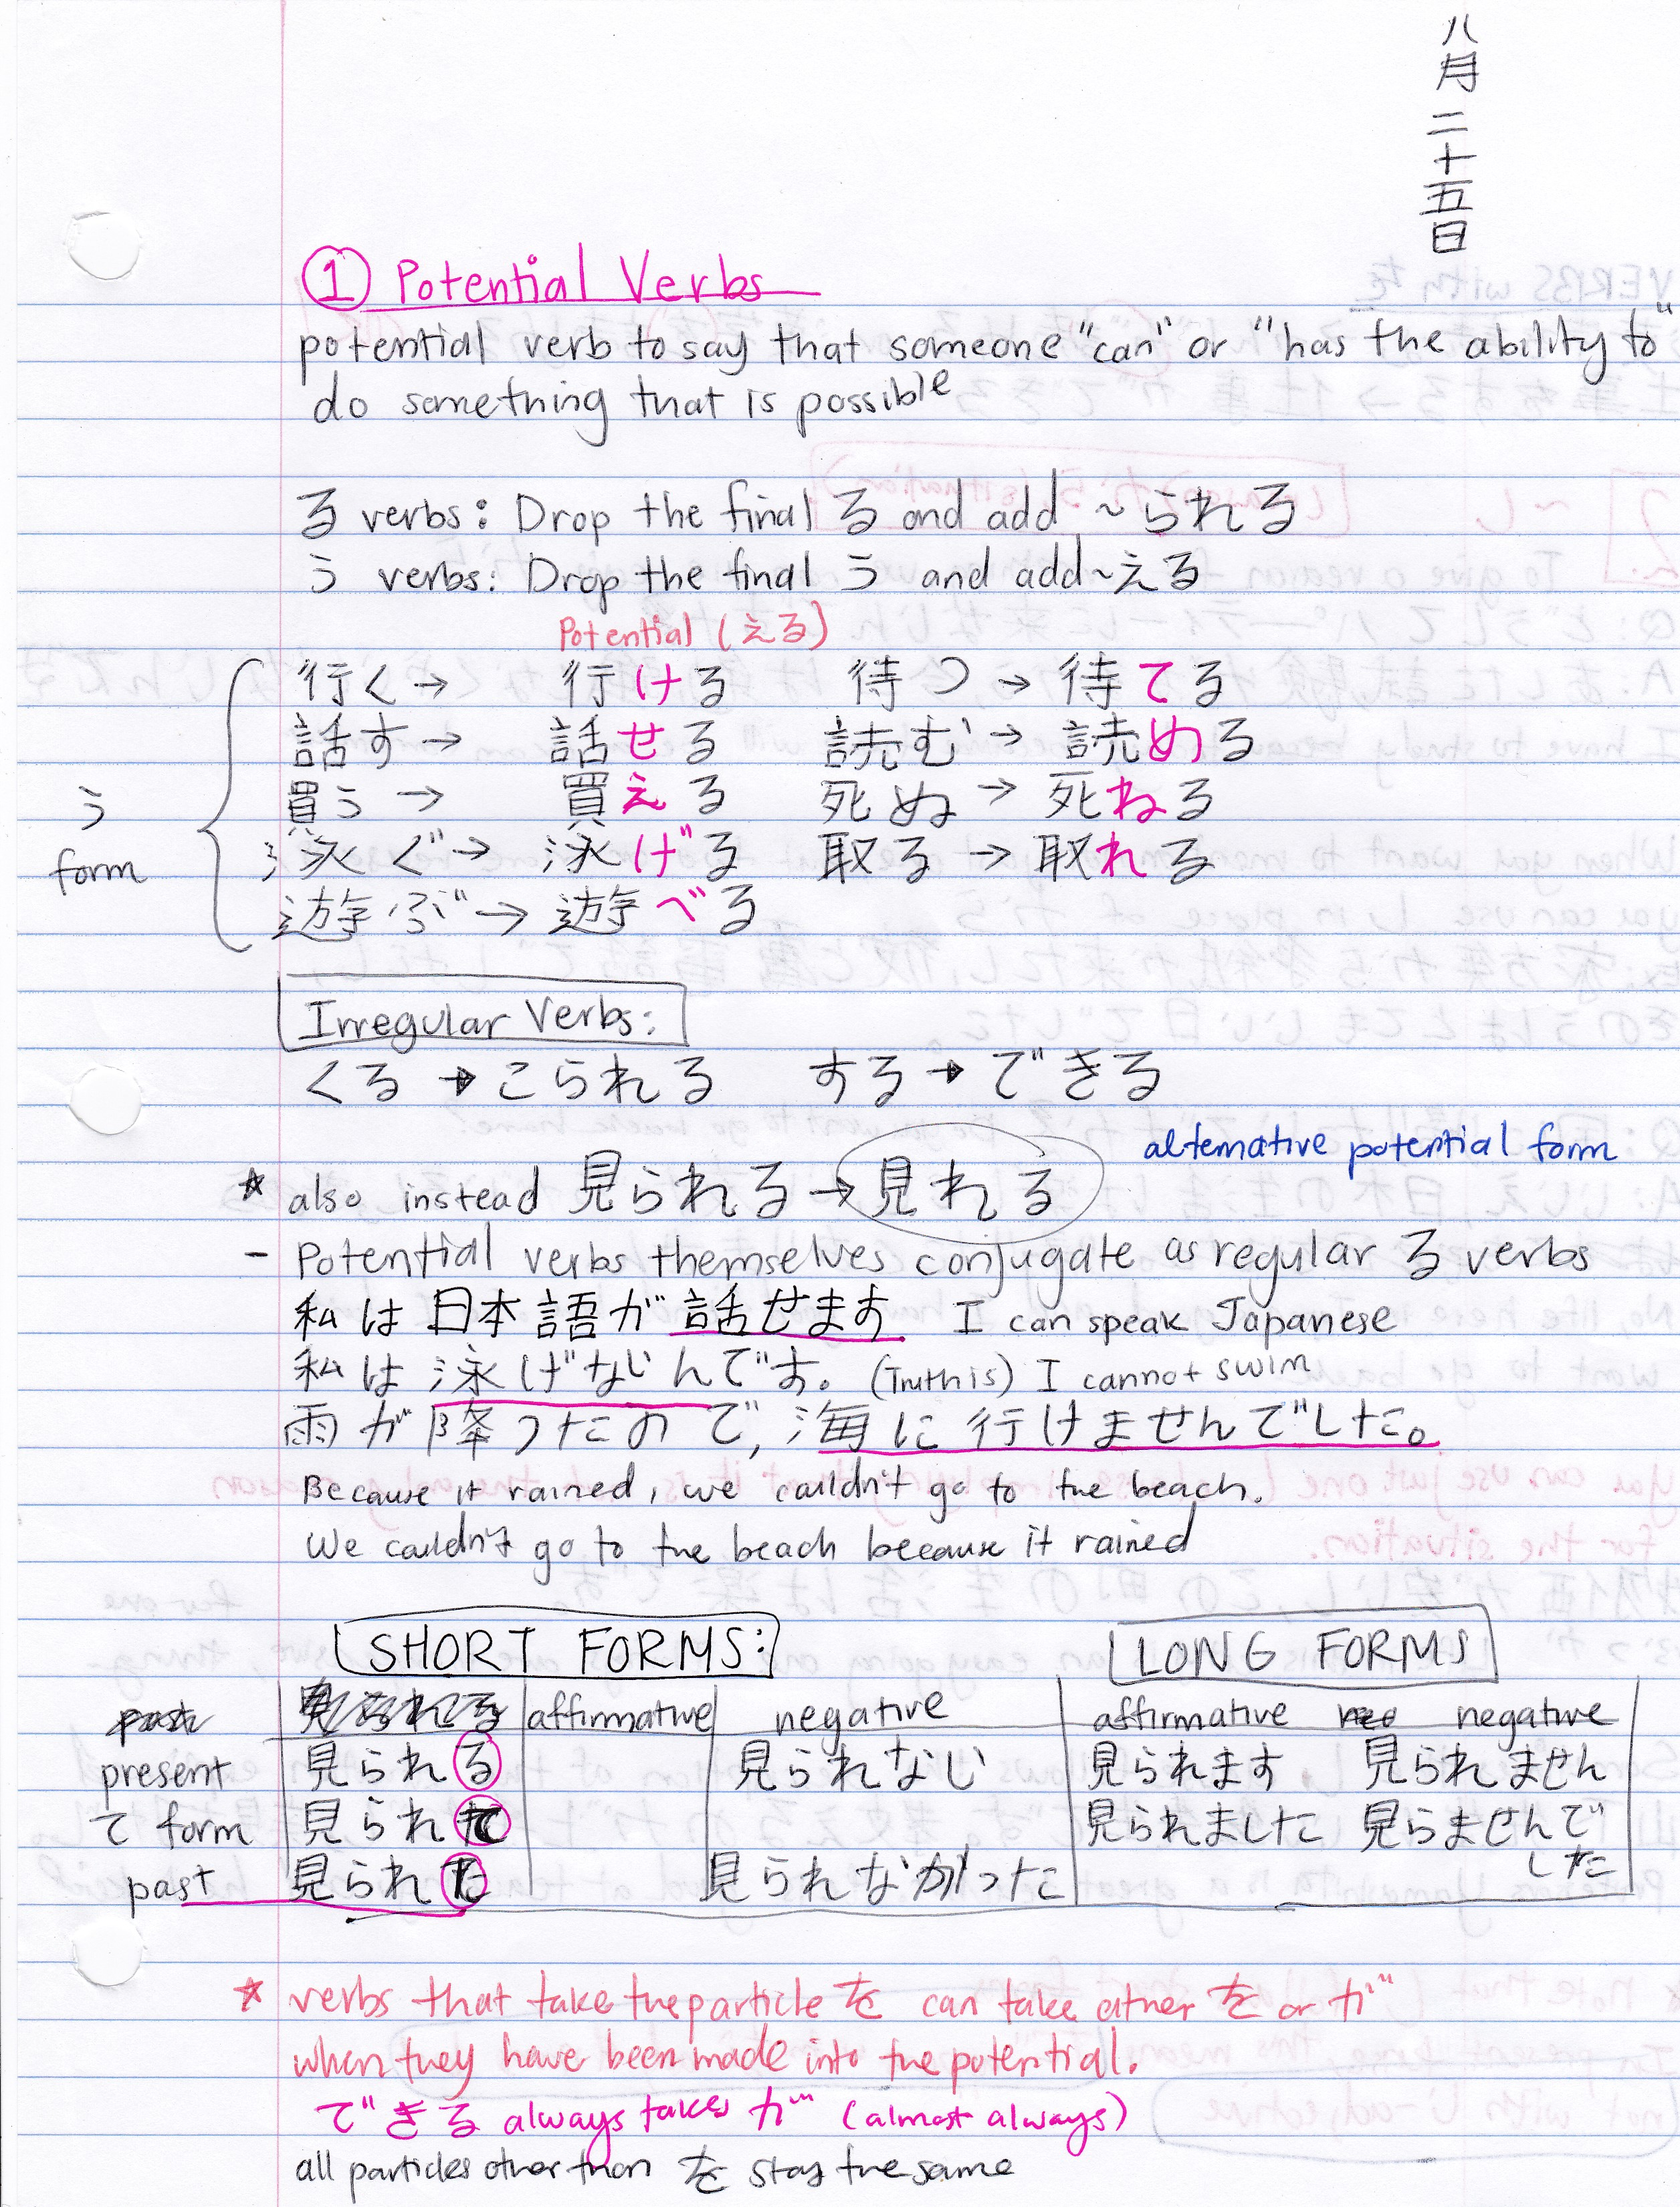 八月二十五日
① Potential Verbs
potential verb to say that someone "can" or "has the ability to"
do something that is possible
る verbs: Drop the final る and add ~られる
う verbs: Drop the final う and add ~える
Potential (える)
う form
行く → 行ける 待つ → 待てる
話す → 話せる 読む → 読める
買う → 買える 死ぬ → 死ねる
泳ぐ → 泳げる 取る → 取れる
遊ぶ → 遊べる
Irregular Verbs:
くる → こられる する → できる
alternative potential form
* also instead 見られる → 見れる
- Potential verbs themselves conjugate as regular る verbs
私は日本語が話せます I can speak Japanese
私は泳げないんです。 (Truth is) I cannot swim
雨が降ったので, 海に行けませんでした。
Because it rained, we couldn't go to the beach.
We couldn't go to the beach because it rained
SHORT FORMS: LONG FORMS
affirmative negative affirmative negative
present 見られる 見られない 見られます 見られません
て form 見られて 見られました 見らませんでした
past 見られた 見られなかった
* verbs that take the particle を can take either を or が
when they have been made into the potential.
できる always takes が (almost always)
all particles other than を stay the same